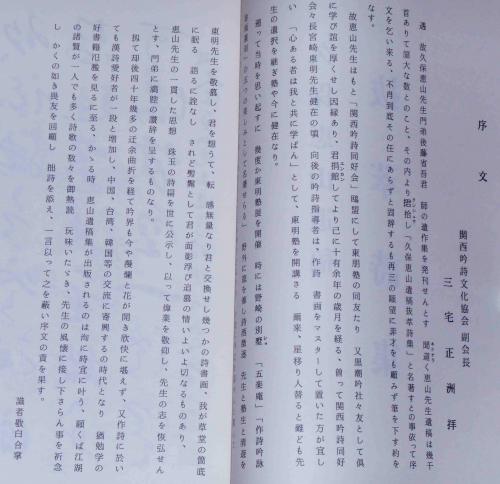 序文
関西吟詩文化協会 副会長
三宅正洲 拝
遇 故久保恵山先生門弟後藤省吾君 師の遺作集を発刊せんとす 聞道く恵山先生遺稿は幾千
首ありて厖大な数とのこと、その内より捃拾し「久保恵山遺稿抜萃詩集」と名著すとの事依って序
文を乞い来る、不肖到底その任にあらずと固辞するも再三の 望に菲才をも顧みず筆を下す約を
なす。
故恵山先生はもと「関西吟詩同好会」鴎盟にして東朋塾の同友たり 又里潮吟社々友として倶
に学び誼を厚くせし因縁あり、君捐館してより已に十有余年の歳月を経る、曽って関西吟詩同好
会々長宮崎東明先生健在の頃 向後の吟詩指導者は、作詩 書画をマスターして置いた方が宜し
い、「心ある者は我と共に学ばん」として、東明塾を開講さる 爾来、星移り人替ると雖ども先
生の選択を継ぎ塾や今に健在なり。
遡って当時を思い起すに 幾度か東明塾莚を開催 時には野崎の別墅「五楽庵」「作詩吟詠
の五つの楽しみとして名書せらる」 野外に筵を催し詩酒 先生と塾生と清遊を
東明先生を敬慕し、君を想うて、転 感無量なり君と交換せし幾つかの詩書画、我が草堂の筐底
に眠る 語るに詮なし されど髣髴として君が面影浮び追慕の情いよいよ切なるものあり、
恵山先生の一貫した思想 珠玉の詩扁を世に公示し、以って偉業を敬仰し、先生の志を恢弘せん
とす、門弟に満腔の讃辞を呈するものなり。
扨て却後四十年幾多の迂余曲折を経て吟界も今や漫爛と花が開き欣快に堪えず、又作詩に於い
ても漢詩愛好者が一段と増加し、中国、台湾、韓国等の交流に寄興するの時代となり 猶勉学の
好書籍氾濫を見るに至る、かゝる時 恵山遺稿集が出版されるのは洵に時宜に叶う、願くば江湖
の諸賢が一人でも多く詩歌の数々を御熟読 玩味いたゞき、先生の風懐に接し下さらん事を祈念
し かくの如き畏友を回顧し 拙詩を添え、一言以って之を蔽い序文の責を果す。
識者敬白合掌